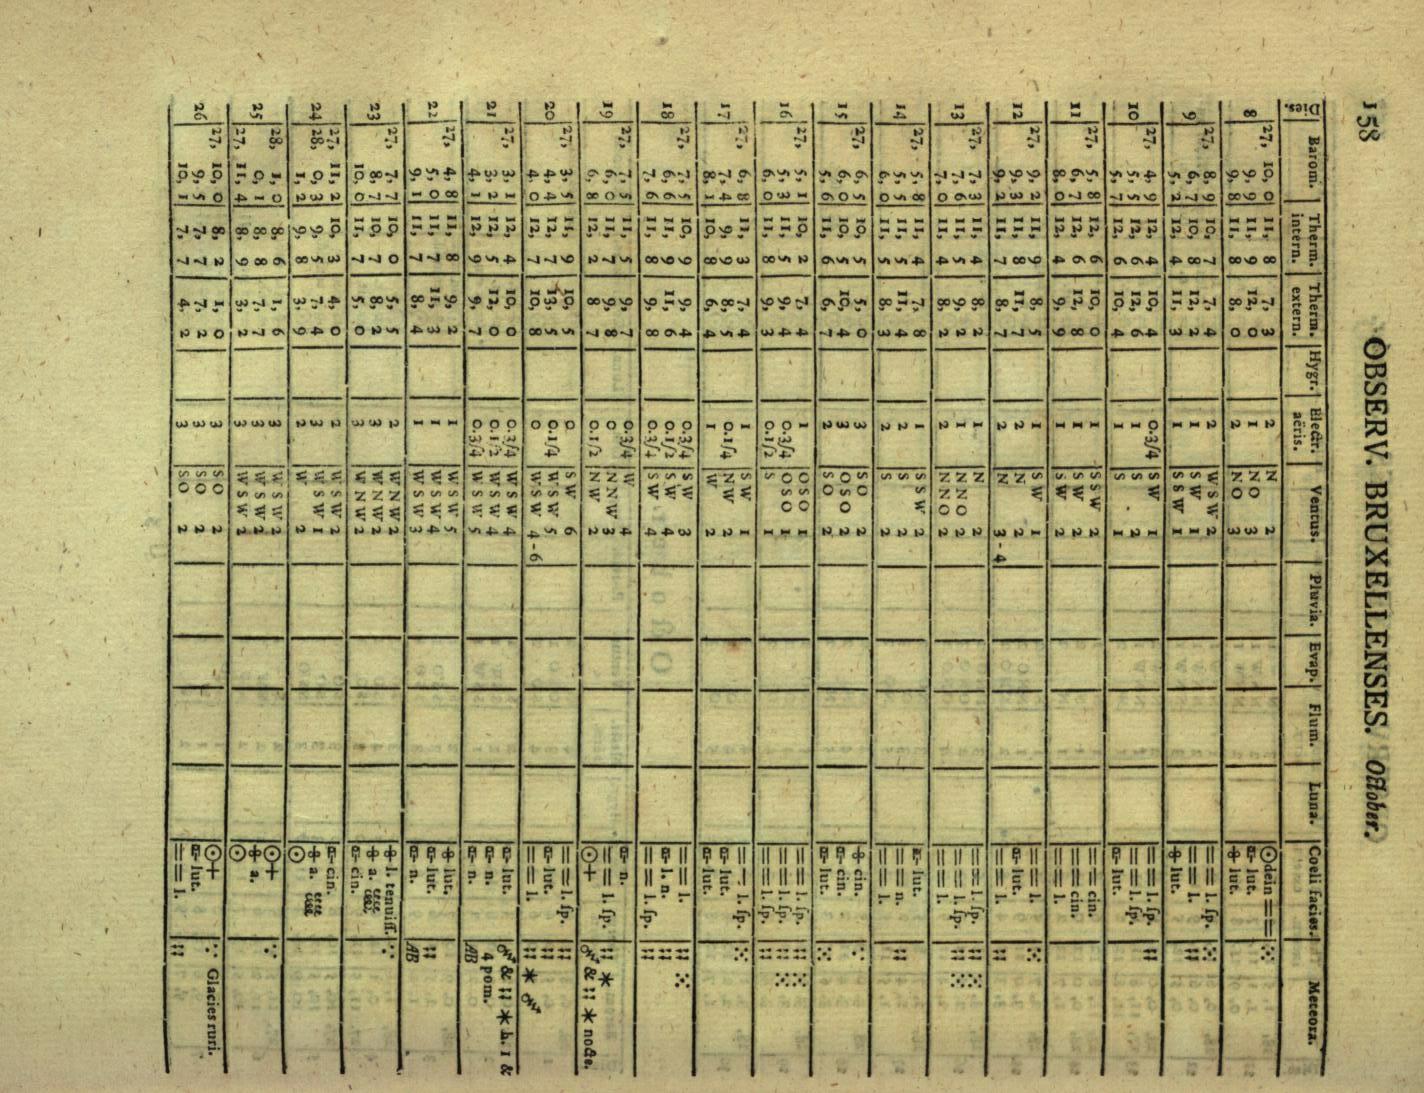 158 OBSERVAT. BRUXELLENSES. October.
Dies. Barom. Therm. intern. Therm. extern. Hygr. Electr. aëris. Ventus. Pluvia. Evap. Flum. Luna. Coeli facies. Meteora.
8 27, 10, 0 11, 8 7, 3 2 N 2 ⊙ dein ==
9, 9 11, 9 12, 0 1 NO 3 lut.
9, 8 11, 8 8, 0 2 NO 3 lut.
9 27, 8, 9 10, 7 7, 4 2 WSW 2 == l. sp.
6, 7 10, 8 12, 2 1 SW 1 == l.
5, 2 11, 4 11, 3 1 SSW 1 lut.
10 27, 4, 9 12, 4 10, 4 0.3/4 SW 1 == l. sp.
5, 5 12, 6 12, 6 1 S 2 == l. sp.
5, 7 12, 6 10, 4 1 S 1 lut.
11 27, 5, 8 12, 6 10, 0 1 SSW 2 == cin.
6, 7 12, 6 12, 8 1 SW 2 == cin.
8, 0 12, 4 9, 9 1 SW 2 == l.
12 27, 9, 2 11, 9 8, 5 1 SW 1 == l.
9, 3 11, 8 11, 7 2 N 2 lut.
9, 2 11, 7 8, 7 2 N 3-4 == l.
13 27, 7, 3 11, 4 8, 2 1 N 2 == l. sp.
7, 6 11, 5 9, 2 1 NNO 2 == l. sp.
7, 0 11, 4 8, 2 2 NNO 2 == l.
14 27, 5, 8 11, 4 7, 8 1 SSW 2 lut.
5, 5 11, 5 11, 4 2 S 2 == n.
6, 0 11, 5 8, 3 2 S 2 == l.
15 27, 6, 5 10, 5 5, 0 3 SO 2 cin.
6, 0 10, 5 10, 4 3 OSO 2 cin.
5, 6 11, 6 6, 7 2 SO 2 lut.
16 27, 5, 1 10, 2 7, 4 1 OSO 1 == l. sp.
5, 3 11, 5 9, 4 0.3/4 OSO 1 == l. sp.
6, 0 11, 8 9, 3 0.1/2 S 1 == l. sp.
17 27, 6, 8 11, 3 7, 4 1 SW 1 == l. sp.
7, 4 11, 9 8, 5 0.1/4 NW 2 lut.
8, 1 10, 8 6, 4 1 W 2 lut.
18 27, 7, 5 10, 9 9, 4 0.3/4 SW 3 == l.
6, 6 11, 9 11, 6 0.1/2 SW 4 l. n.
7, 6 11, 8 9, 8 0.3/4 SW 4 == l. sp.
19 27, 7, 5 11, 5 9, 7 0.3/4 W 4 n.
6, 0 11, 7 9, 7 0 NNW 3 == l. sp. *
6, 8 12, 2 8, 7 0.1/2 NW 2 ⊙+ & * nocte.
20 27, 3, 5 11, 9 10, 5 0 SW 6 == l. sp.
4, 4 12, 7 13, 5 0.1/4 WSW 5 lut.
4, 0 12, 7 10, 8 0 WSW 4-6 == l. *
21 27, 3, 1 12, 4 10, 0 0.3/4 WSW 4 lut. & * h. 1 &
3, 2 12, 5 12, 0 0.1/2 WSW 4 n. 4 pom.
4, 1 12, 9 9, 7 0.3/4 WSW 5 n. AB
22 27, 4, 8 11, 8 9, 2 1 WSW 5 lut.
5, 0 11, 7 11, 3 1 WSW 4 lut.
9, 1 11, 7 8, 4 1 WSW 3 n. AB
23 27, 7, 7 10, 0 5, 5 2 WNW 2 l. tenuiss.
8, 7 10, 7 8, 2 3 WNW 2 a.
10, 0 11, 7 5, 0 3 WNW 2 cin.
24 27, 11, 2 10, 3 4, 0 2 WSW 2 cin.
28, 0, 3 9, 5 7, 4 3 WSW 1 a.
1, 2 9, 8 3, 9 2 W 2 ⊙
25 28, 1, 0 8, 6 1, 6 3 WSW 2 ⊙+
0, 1 8, 8 7, 7 3 WSW 2 a.
27, 11, 4 8, 9 3, 2 3 WSW 2 ⊙
26 27, 10, 0 8, 2 1, 0 3 SO 2 ⊙+ Glacies ruri.
9, 5 7, 7 7, 2 3 SO 2 lut.
10, 1 7, 7 4, 2 3 SO 2 == l.